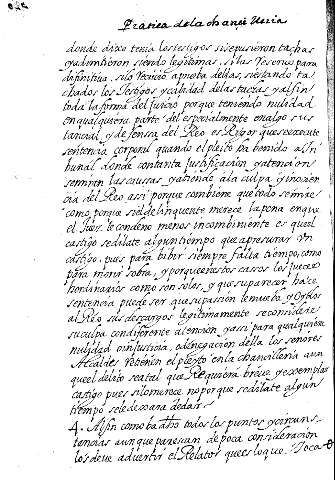 Pratica de la chançilleria
donde dixo tenia los testigos si se pusieron tachas
y admitieron siendo legitimas, si las reservo para
difinitiva, si lo Reçivio aprueba dellas, si estando ta
chados los Testigos y calidad de las tachas y al fin
toda la forma del juicio porque teniendo nulidad
en qualquiera parte del especialmente en algo sus
tancial, y de fensa del Reo es Rigor que se execute
sentencia corporal quando el pleito ha benido a tri
bunal donde con tanta justificacion y atencion
se miran las caussas, y atiende a la culpa y inocen
cia del Reo assi porque combiene que todo se mire
como porque si el delinquente merece la pena en que
el Juez le condeno menos incombiniente es que el
castigo se dilate algun tiempo que apresurar un
castigo, pues para bibir siempre falta tiempo, como
para morir sobra, y porque en estos casos los jueces
hordinarios como son solos, y que su parecer hace
sentencia puede ser que su passion le mueba, y oydos
al Reo sus descargos legitimamente se considere
su culpa con diferente atencion, y assi para qualquiera
nulidad o injusticia, o denegacion della los señores
Alcaldes retienen el pleyto en la chancilleria aun
que el delito sea tal que Requiera breve y exemplar
castigo pues si lo merece no porque se dilate algun
tiempo se le dexara de dar.
4. Al fin como ha dho todos los puntos y circuns
tancias aunque parescan de poca consideración
los deve advertir el Relator que es lo que Toca